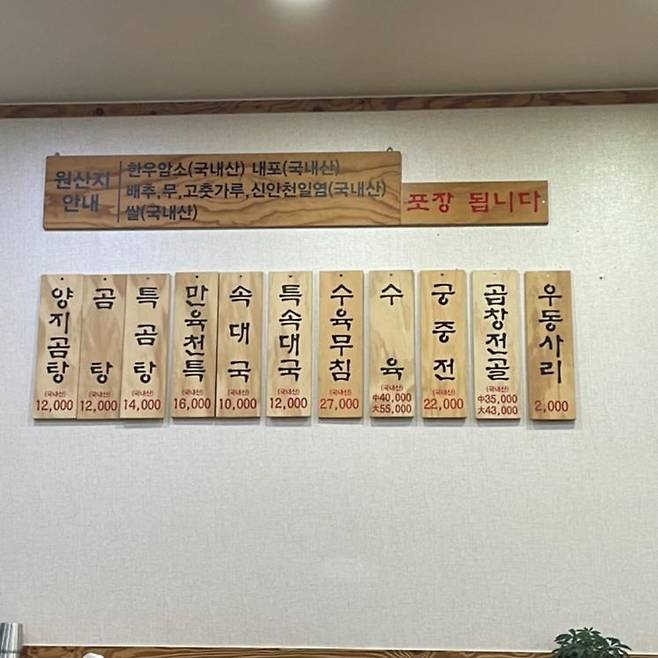 원산지
안내
한우암소(국내산) 내포(국내산)
배추,무,고춧가루,신안천일염(국내산)
쌀(국내산)
포장 됩니다
양지곰탕
(국내산)
12,000
곰탕
(국내산)
12,000
특곰탕
(국내산)
14,000
만육천특
(국내산)
16,000
속대국
(국내산)
10,000
특속대국
(국내산)
12,000
수육무침
(국내산)
27,000
수육
(국내산)
中40,000
大55,000
궁중전
(국내산)
22,000
곱창전골
(국내산)
中35,000
大43,000
우동사리
2,000